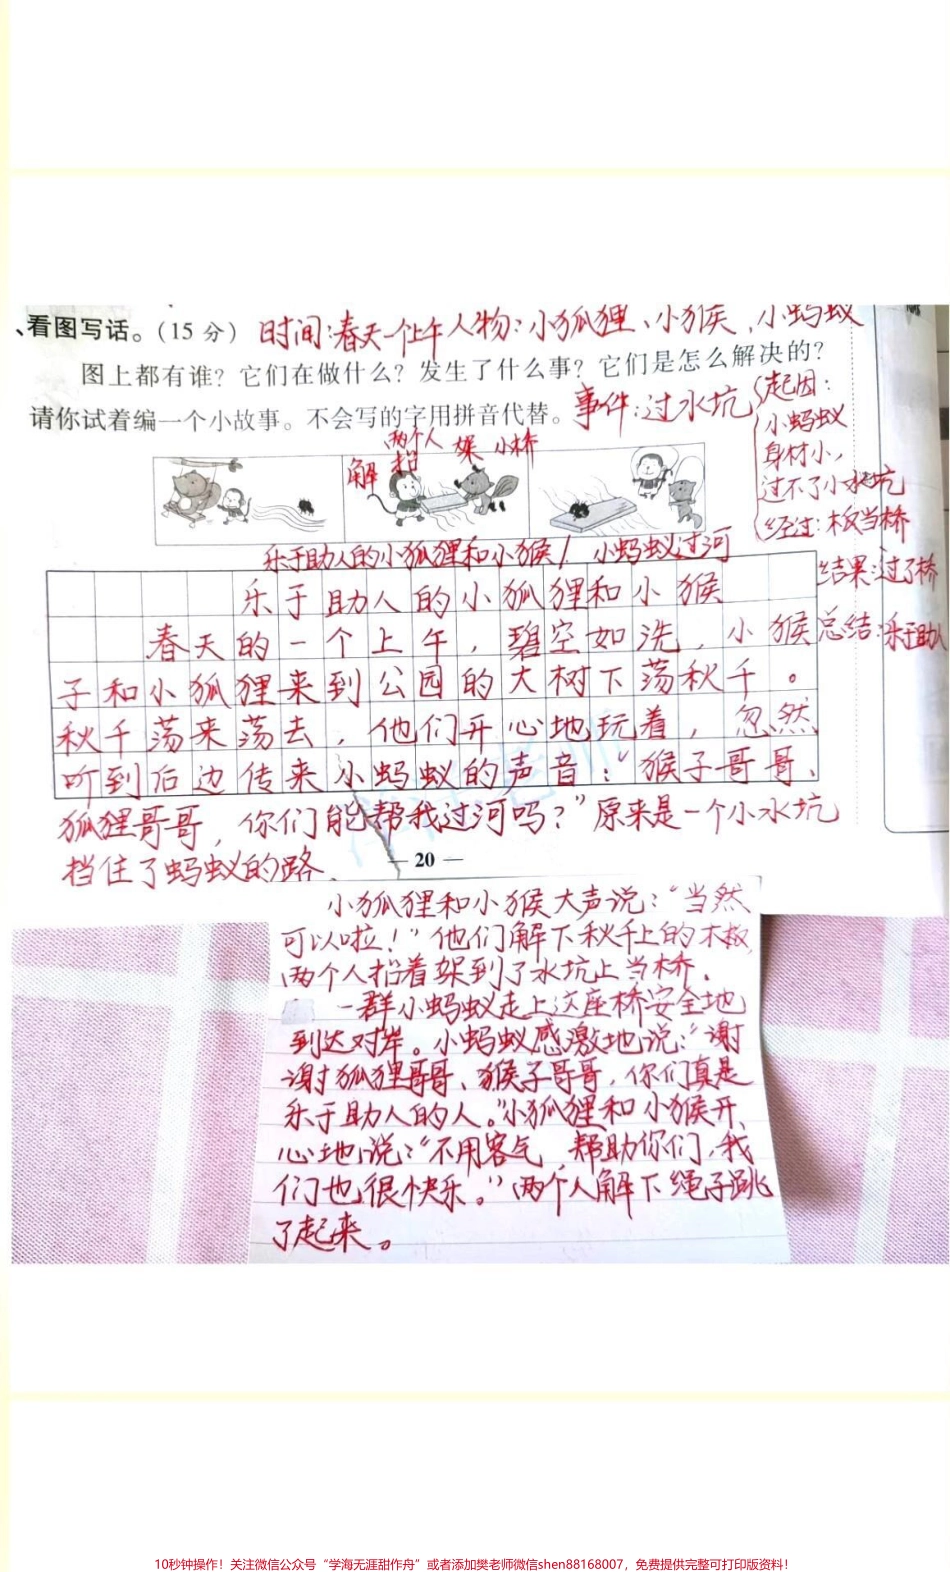 、看图写话。(15 分) 时间:春天一个上午 人物:小狐狸、小猴、小蚂蚁
图上都有谁？它们在做什么？发生了什么事？它们是怎么解决的？
请你试着编一个小故事。不会写的字用拼音代替。 事件:过水坑
起因:
小蚂蚁
身材小,
过不了小水坑
经过:木板当桥
结果:过了桥
总结:乐于助人
两个人
解 抬 架 小桥
乐于助人的小狐狸和小猴/ 小蚂蚁过河
乐于助人的小狐狸和小猴
春天的一个上午，碧空如洗，小猴
子和小狐狸来到公园的大树下荡秋千。
秋千荡来荡去，他们开心地玩着，忽然
听到后边传来小蚂蚁的声音:“猴子哥哥、
狐狸哥哥，你们能帮我过河吗?”原来是一个小水坑
挡住了蚂蚁的路.
— 20 —
小狐狸和小猴大声说:“当然
可以啦!”他们解下秋千上的木板,
两个人抬着架到了水坑上当桥.
一群小蚂蚁走上这座桥安全地
到达对岸。小蚂蚁感激地说:“谢
谢狐狸哥哥、猴子哥哥,你们真是
乐于助人的人。”小狐狸和小猴开
心地说:“不用客气,帮助你们,我
们也很快乐。”两个人解下绳子跳
了起来。
10秒钟操作！关注微信公众号“学海无涯甜作舟”或者添加樊老师微信shen88168007，免费提供完整可打印版资料！